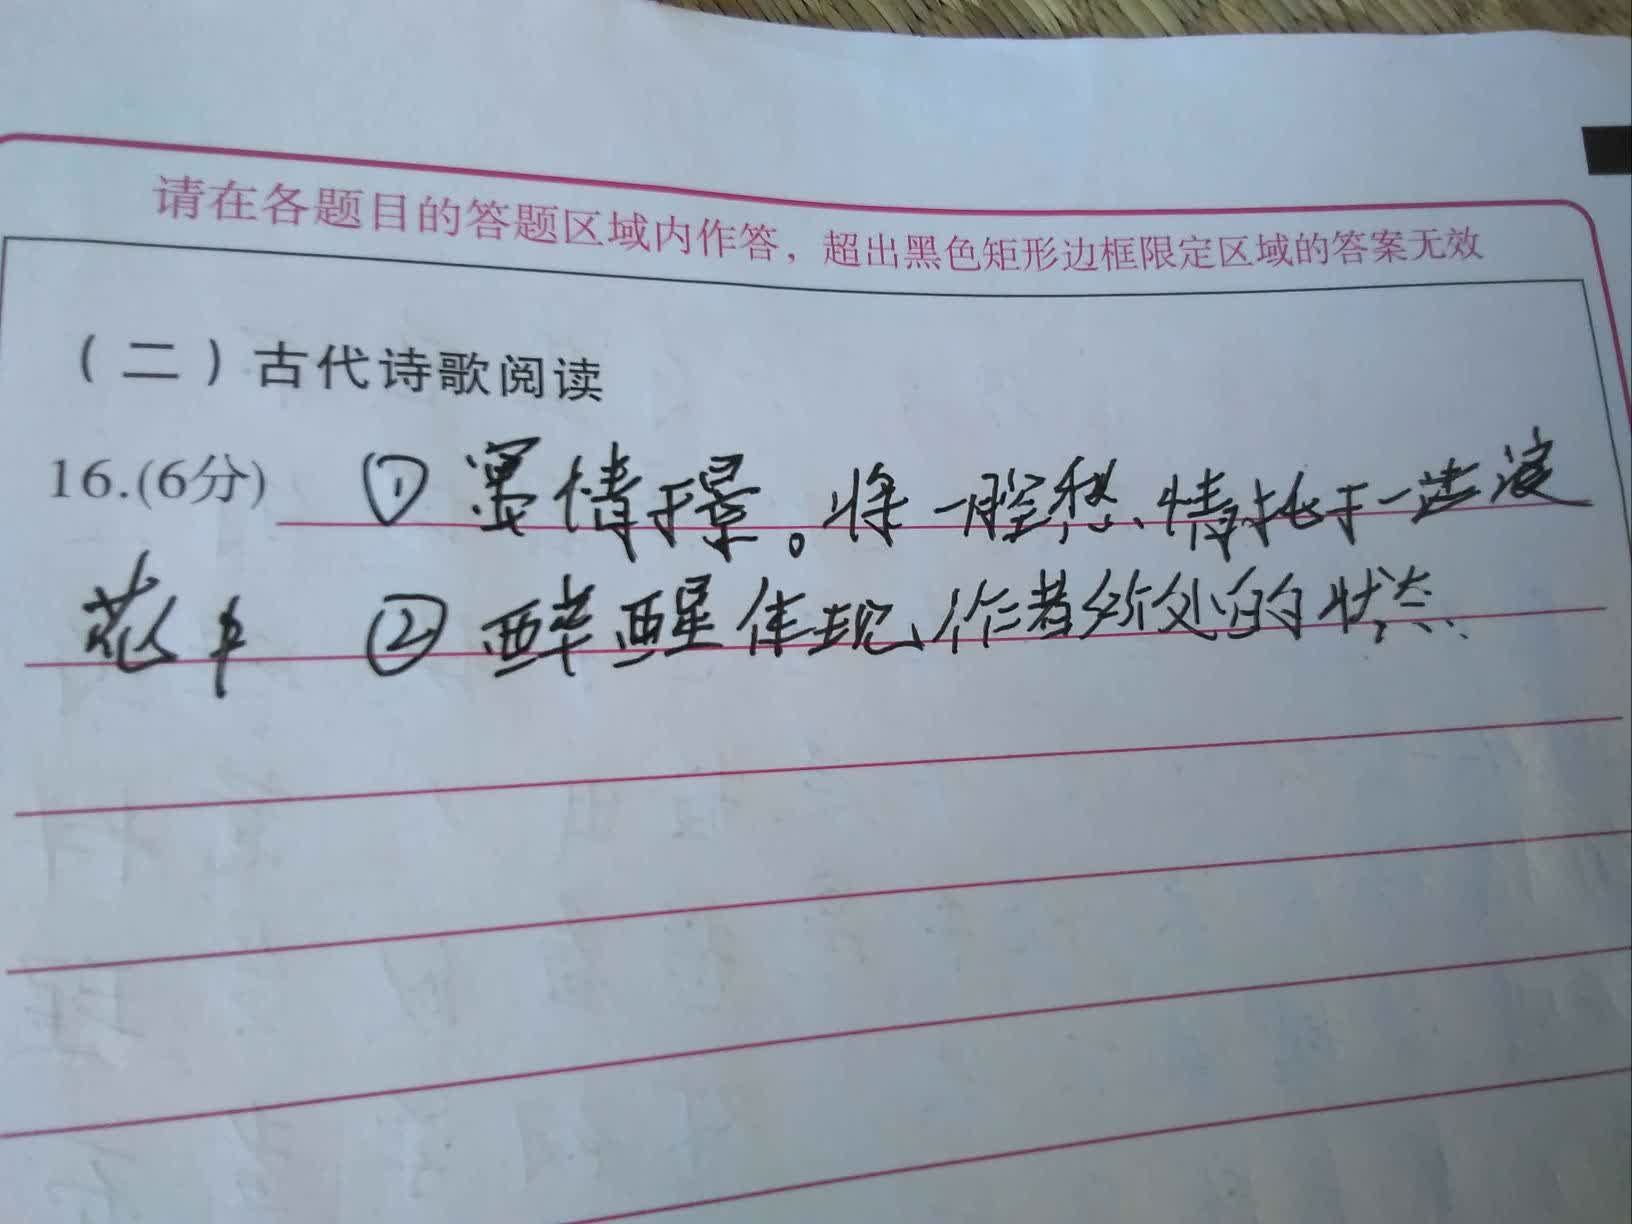 请在各题目的答题区域内作答，超出黑色矩形边框限定区域的答案无效
（二）古代诗歌阅读
16.(6分) ① 寓情于景。将一腔愁情托于一边淀
花中 ② 醉醒体现作者所处的状态.